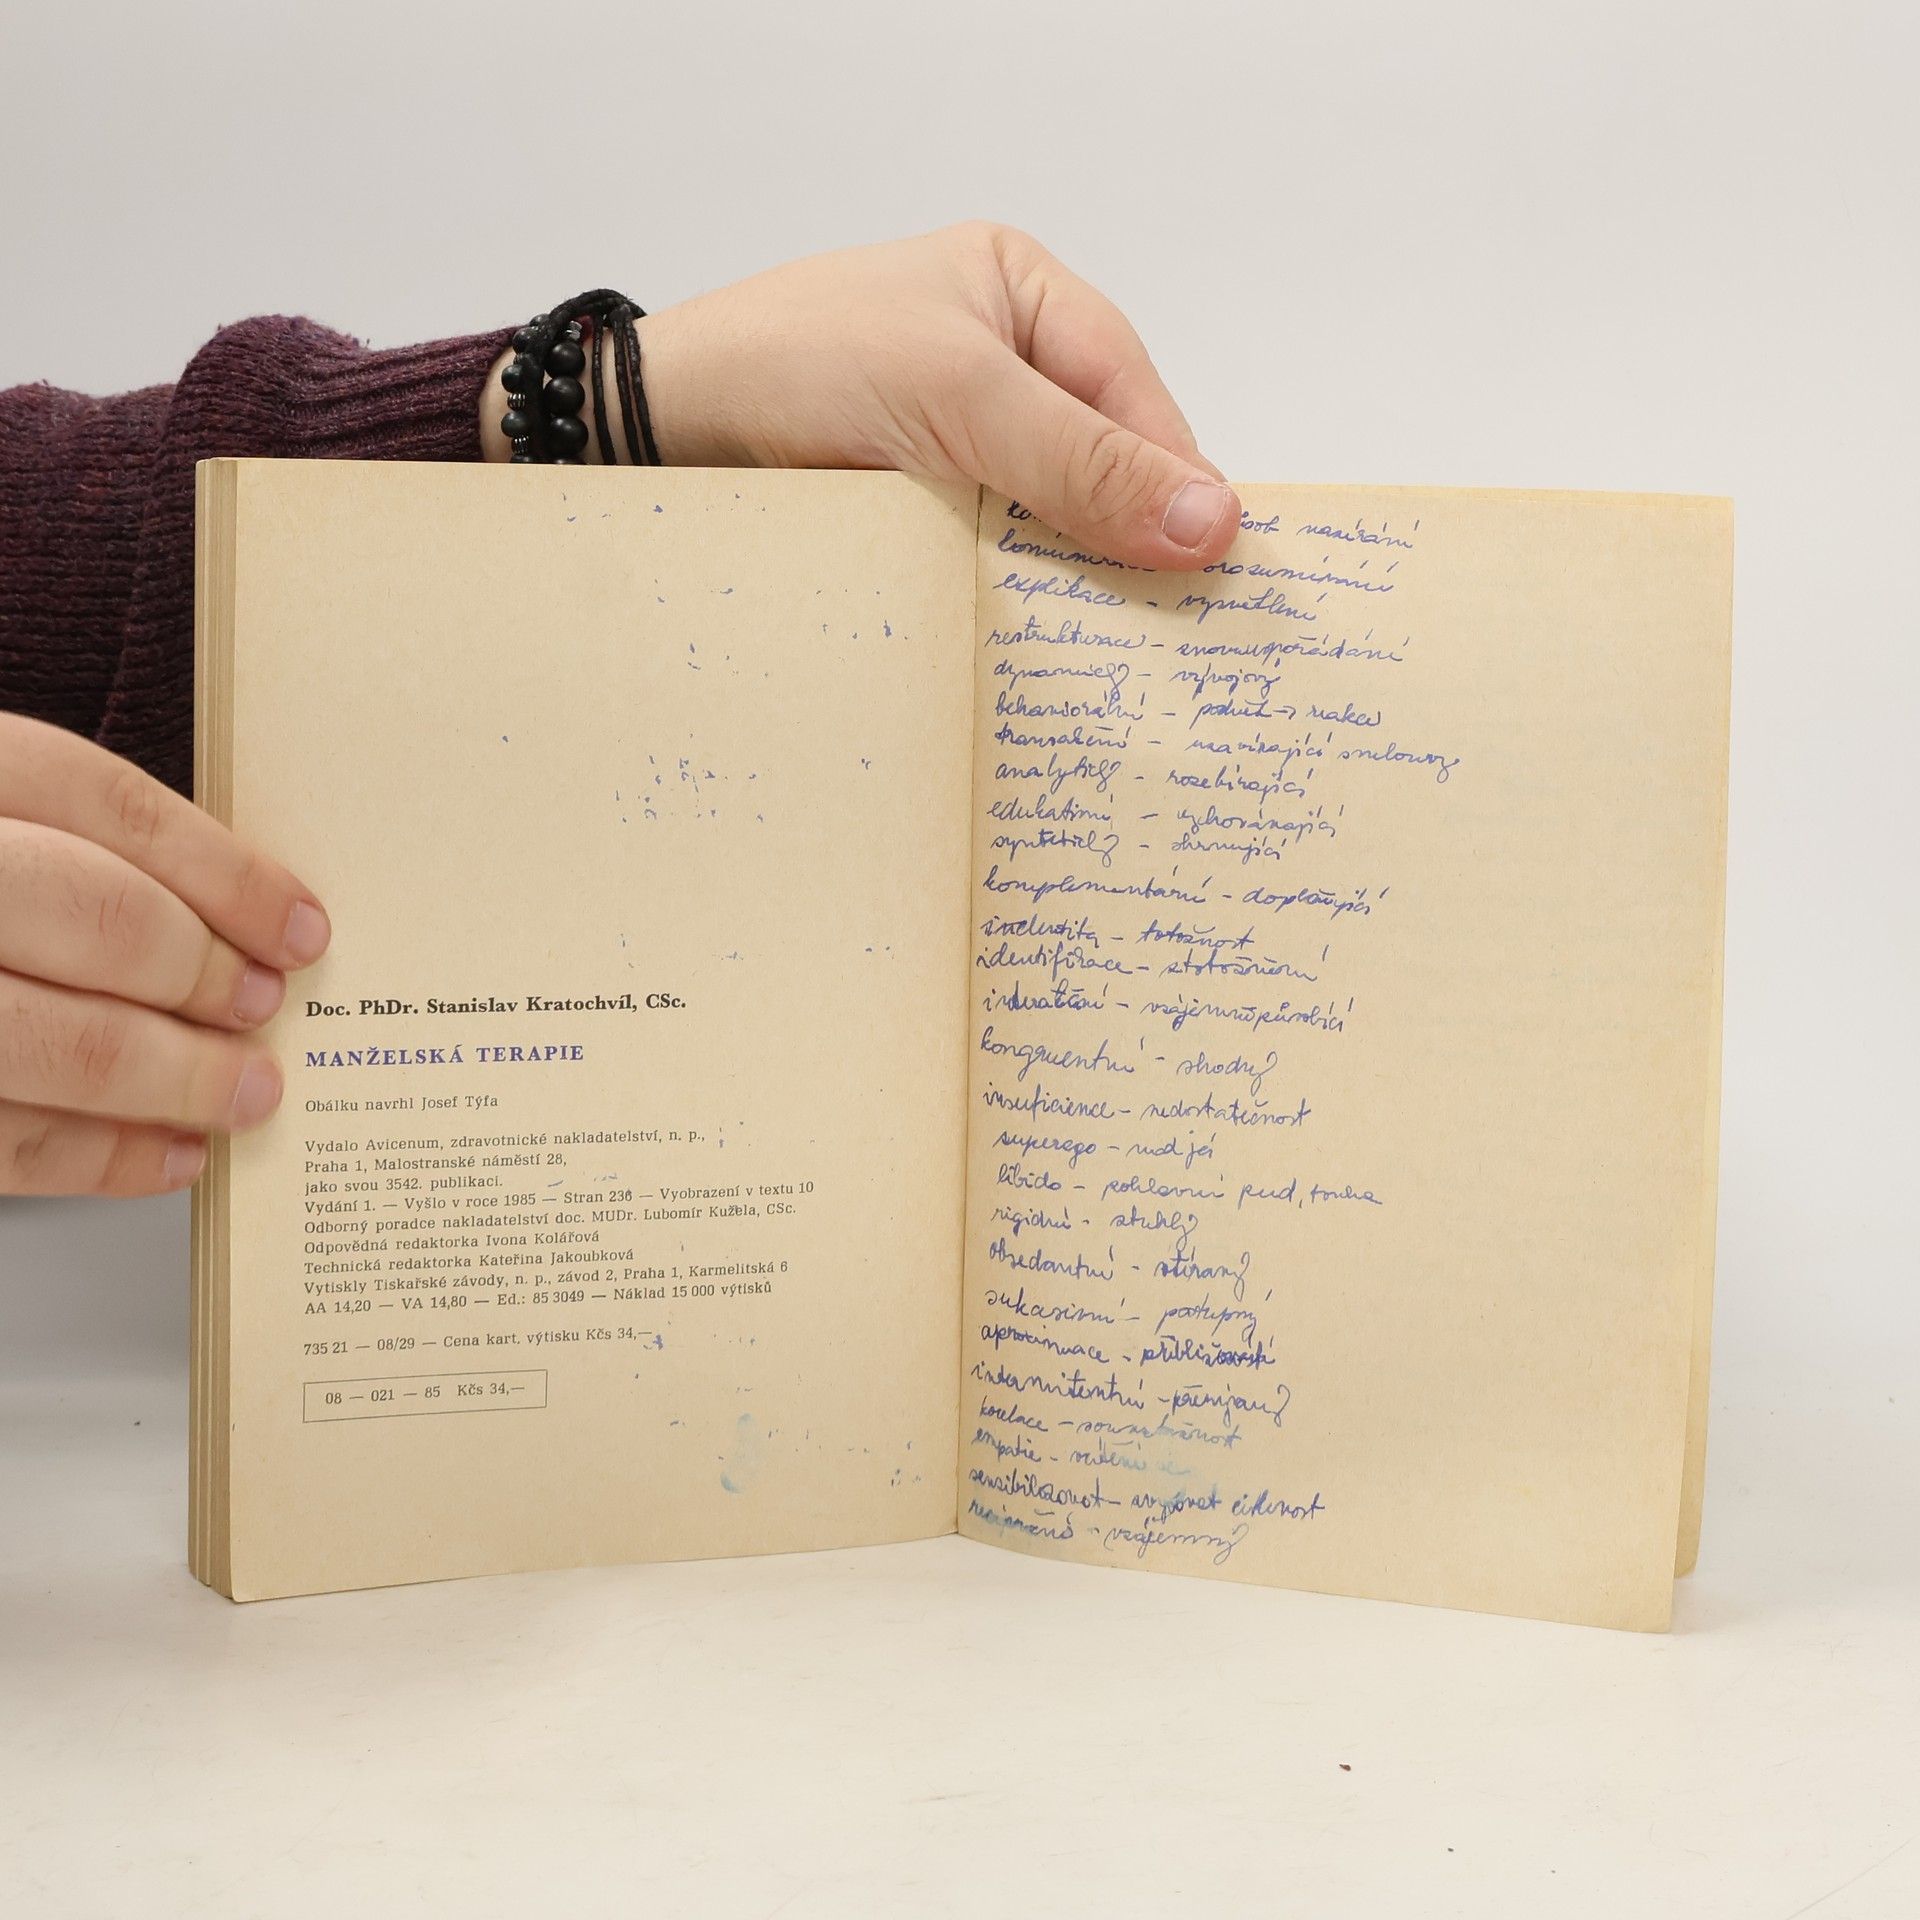 Doc. PhDr. Stanislav Kratochvíl, CSc.
MANŽELSKÁ TERAPIE
Obálku navrhl Josef Týfa
Vydalo Avicenum, zdravotnické nakladatelství, n. p.,
Praha 1, Malostranské náměstí 28,
jako svou 3542. publikaci.
Vydání 1. — Vyšlo v roce 1985 — Stran 236 — Vyobrazení v textu 10
Odborný poradce nakladatelství doc. MUDr. Lubomír Kužela, CSc.
Odpovědná redaktorka Ivona Kolářová
Technická redaktorka Kateřina Jakoubková
Vytiskly Tiskařské závody, n. p., závod 2, Praha 1, Karmelitská 6
AA 14,20 — VA 14,80 — Ed.: 85 3049 — Náklad 15 000 výtisků
735 21 — 08/29 — Cena kart. výtisku Kčs 34,—
08 — 021 — 85 Kčs 34,—
nazírání
explikace – vysvětlení
restrukturace – znovuuspořádání
dynamický – vývojový
behaviorální – podnět → reakce
transakční – uzavírající smlouvy
analytický – rozebírající
edukativní – vychovávající
syntetický – shrnující
komplementární – doplňující
identita – totožnost
identifikace – ztotožnění
interakční – vzájemně působící
kongruentní – shodný
insuficience – nedostatečnost
superego – nad já
libido – pohlavní pud, touha
rigidní – ztuhlý
obsedantní – utíraný
sukcesivní – postupný
aproximace –
intermitentní –
korelace – souvztažnost
empatie – vcítění se
sensibilizovat – zvyšovat citlivost
reciproční – vzájemný